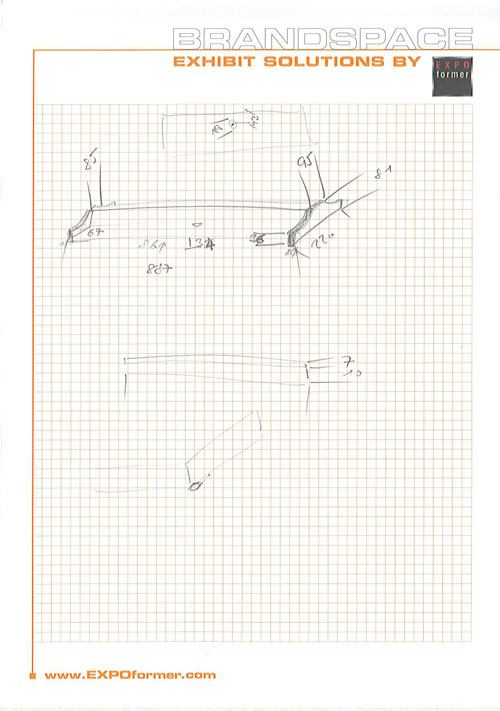 BRANDSPACE
EXHIBIT SOLUTIONS BY
EXPO
former
85
95
81
67
861
134
220
887
7
10
www.EXPOformer.com